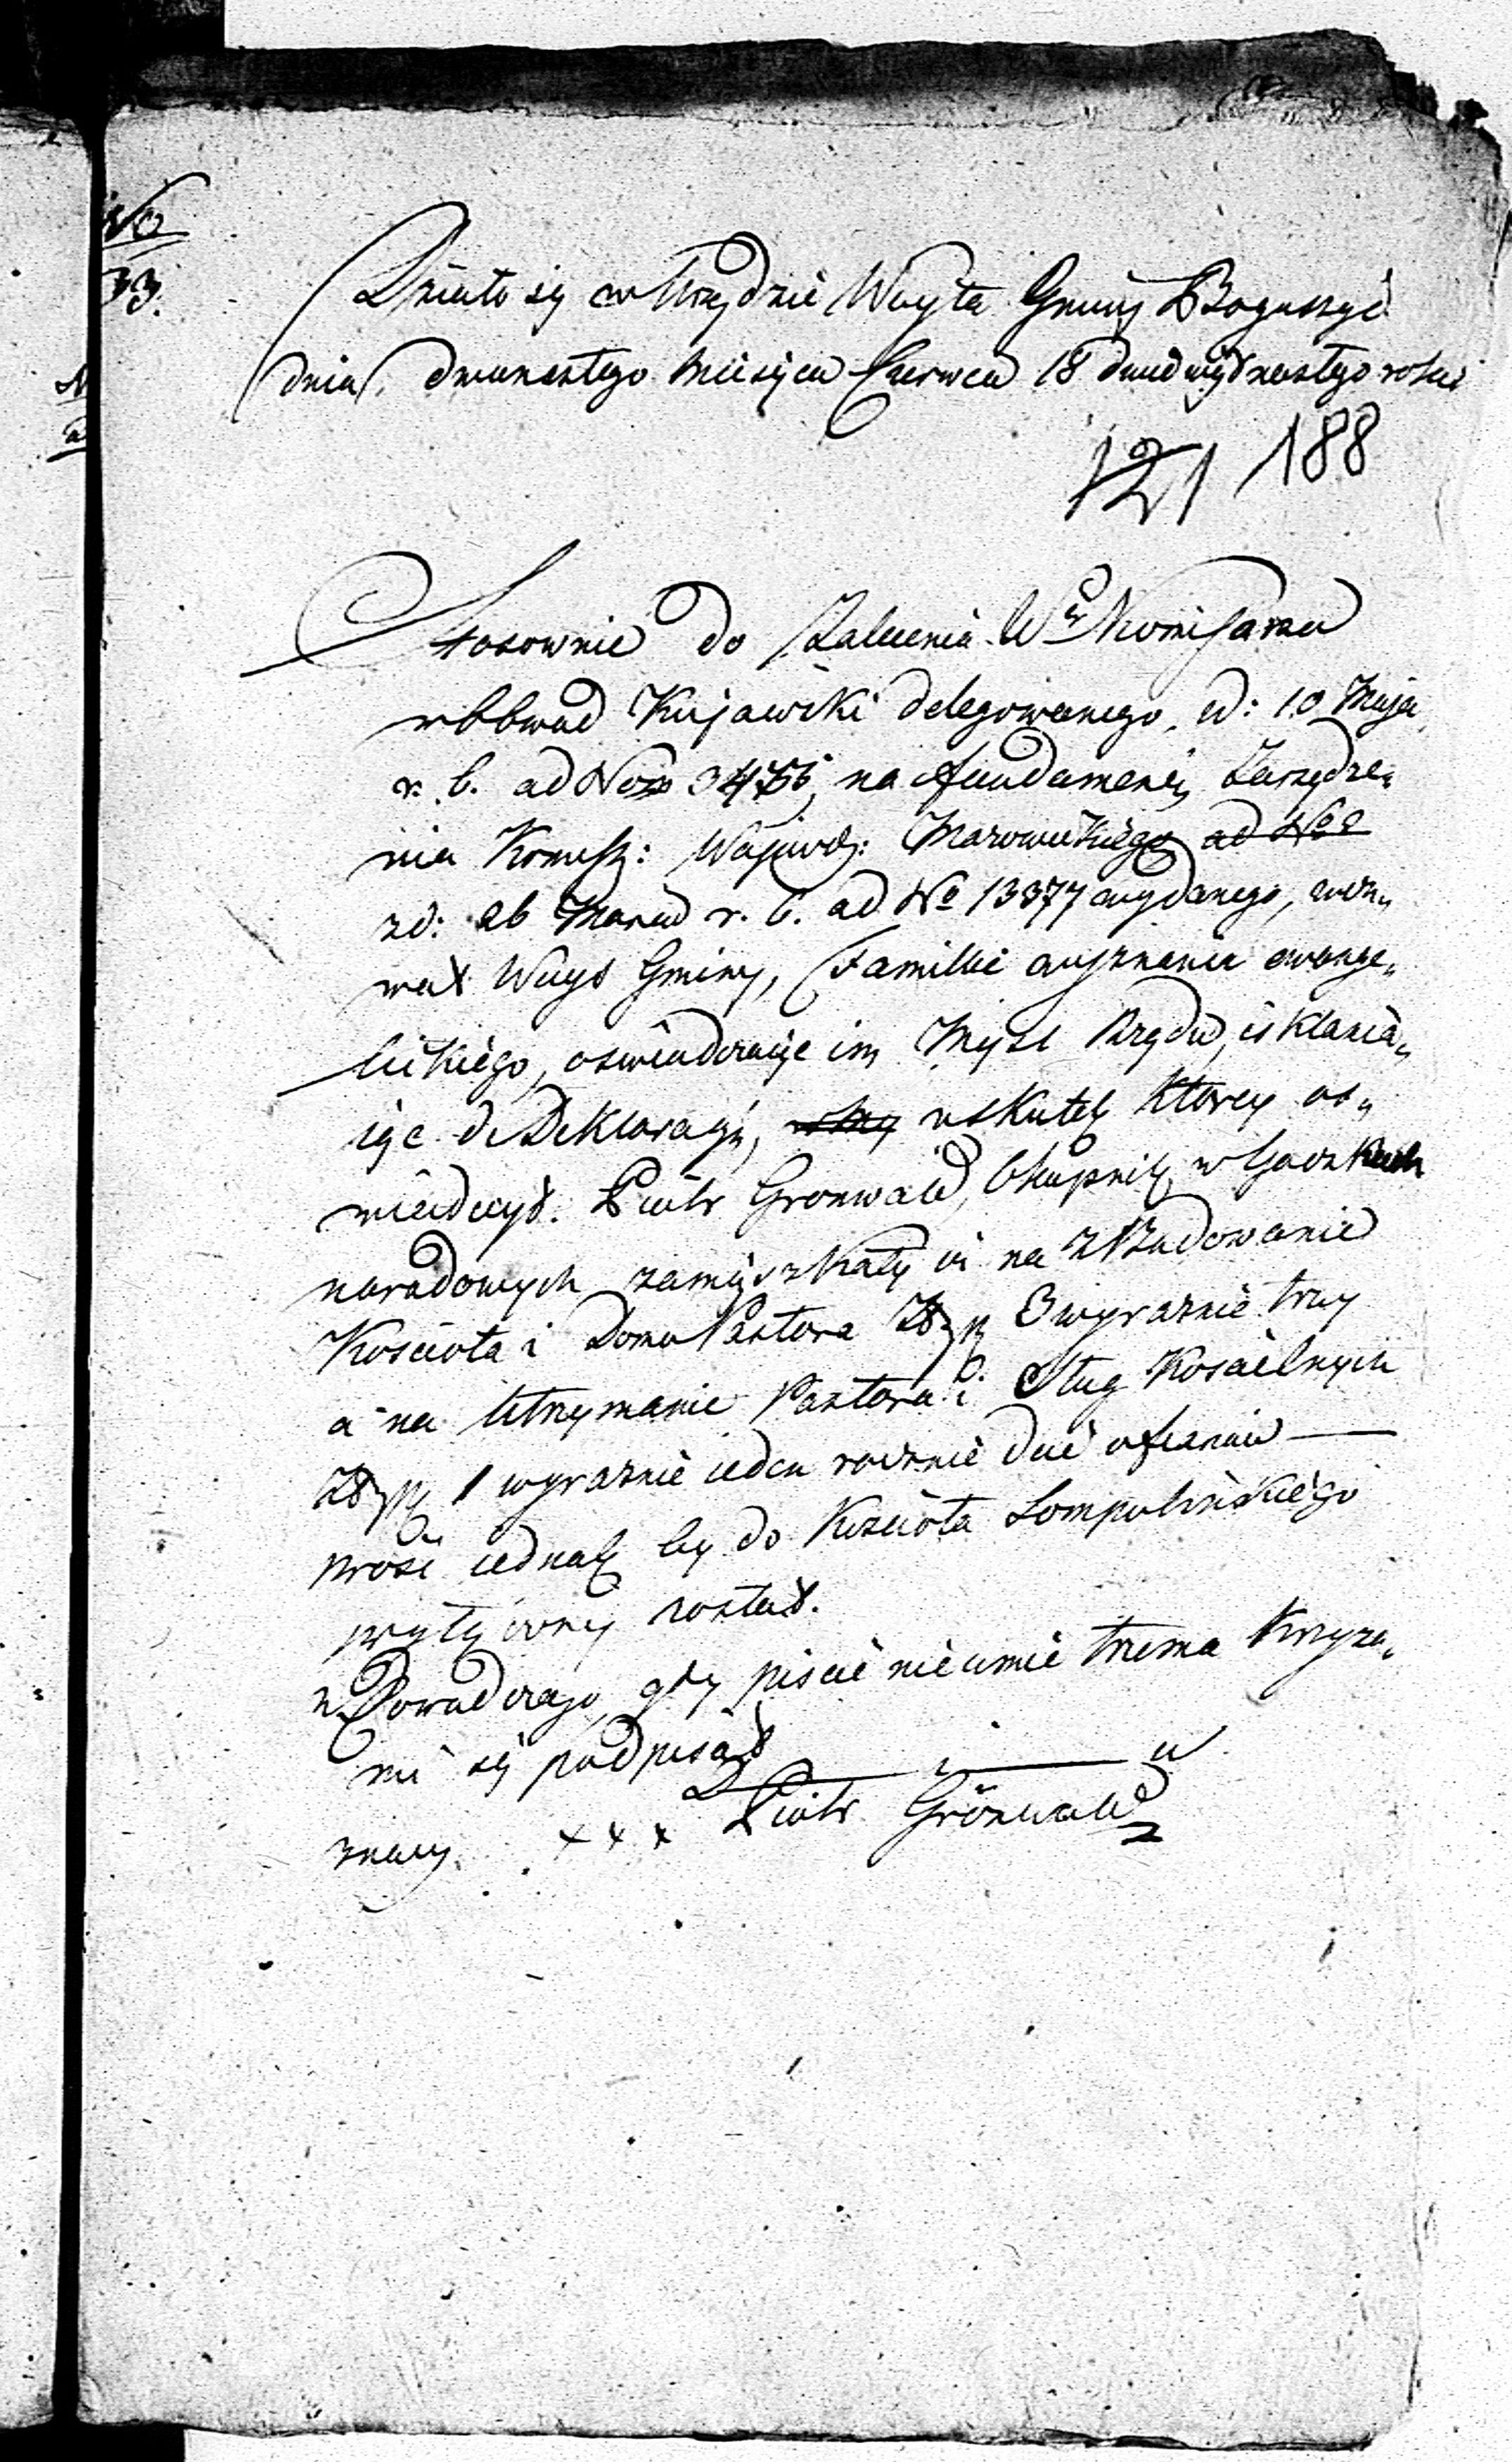 No
33.
Działo się w Urzędzie Woyta Gminy Boguszyc
dnia dwunastego Miesiąca Czerwca 18 dwudziestego roku
121 188
Stosownie do Zalecenia Wgo Kommissarza
w Obwod Kujawski delegowanego, d: 10 Maja
r. b. ad No 3476, na fundamencie Zarządze„
nia Komiss: Wojewdz: Mazowieckiego ad No
zd: 26 Marca r. b. ad No 13377 wydanego, wez„
wał Woyt Gminy, Familie wyznania ewange„
lickiego, oświadczaiąc im Myśl Rządu, i skłania„
iąc do Deklaracyi, wskutek ktorey os„
wiadczył Piotr Gronwald, Okupnik w Gaczkach
narodowych zamieszkały iż na zBudowanie
Kościoła i Domu Pastora Złp 3 wyraznie trzy
a na Utrzymanie Pastora i Sług Kościelnych
Złp 1 wyraznie ieden rocznie daie ofiarnie
prosi iednak by do Kościoła Sompolińskiego
przyłączony został.
z Dowod czego, gdy pisać nieumie trzema Krzyza„
mi się podpisał
znaczy. x x x Piotr Grönwald